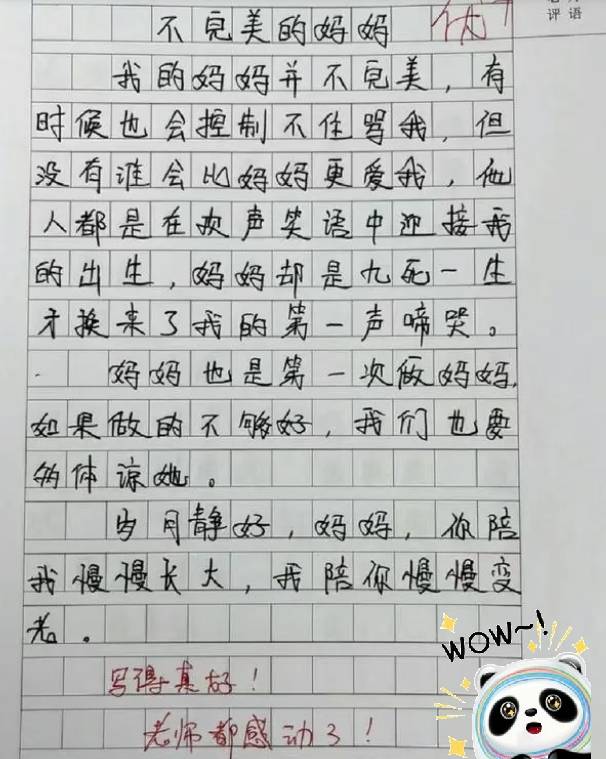 评语
不完美的妈妈 优
我的妈妈并不完美，有
时候也会控制不住骂我，但
没有谁会比妈妈更爱我，他
人都是在欢声笑语中迎接我
的出生，妈妈却是九死一生
才换来了我的第一声啼哭。
妈妈也是第一次做妈妈，
如果做的不够好，我们也要
体谅她。
岁月静好，妈妈，你陪
我慢慢长大，我陪你慢慢变
老。
写得真好！
老师都感动了！
WOW~！